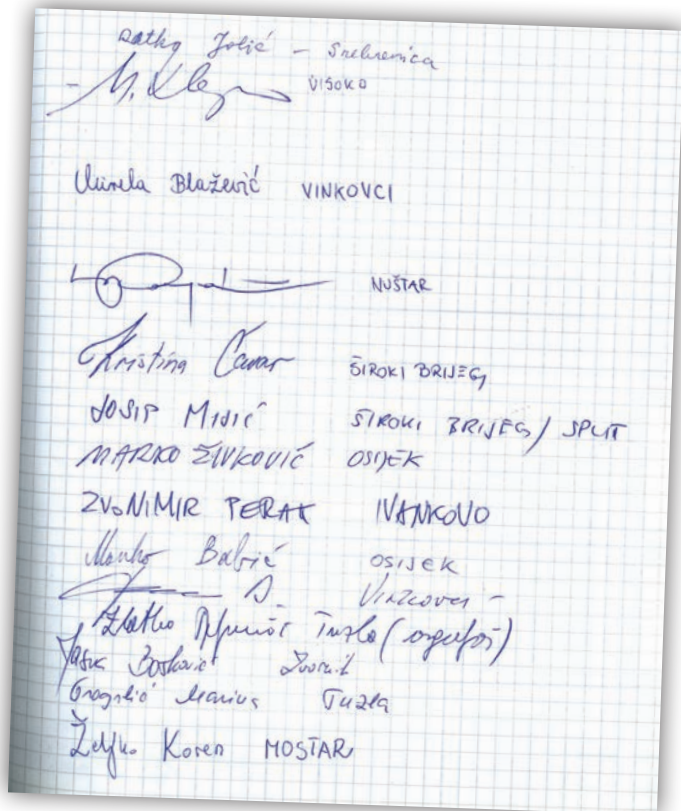 Ratko Jolić – Srebrenica
VISOKO
Mirela Blažević VINKOVCI
NUŠTAR
Kristina Čavar ŠIROKI BRIJEG
JOSIP MIJIĆ ŠIROKI BRIJEG / SPLIT
MARKO ŽIVKOVIĆ OSIJEK
ZVONIMIR PERAK IVANKOVO
Marko Babić OSIJEK
Vinkovci –
Zlatko Tuzla
Zvornik
Tuzla
Željko Koren MOSTAR